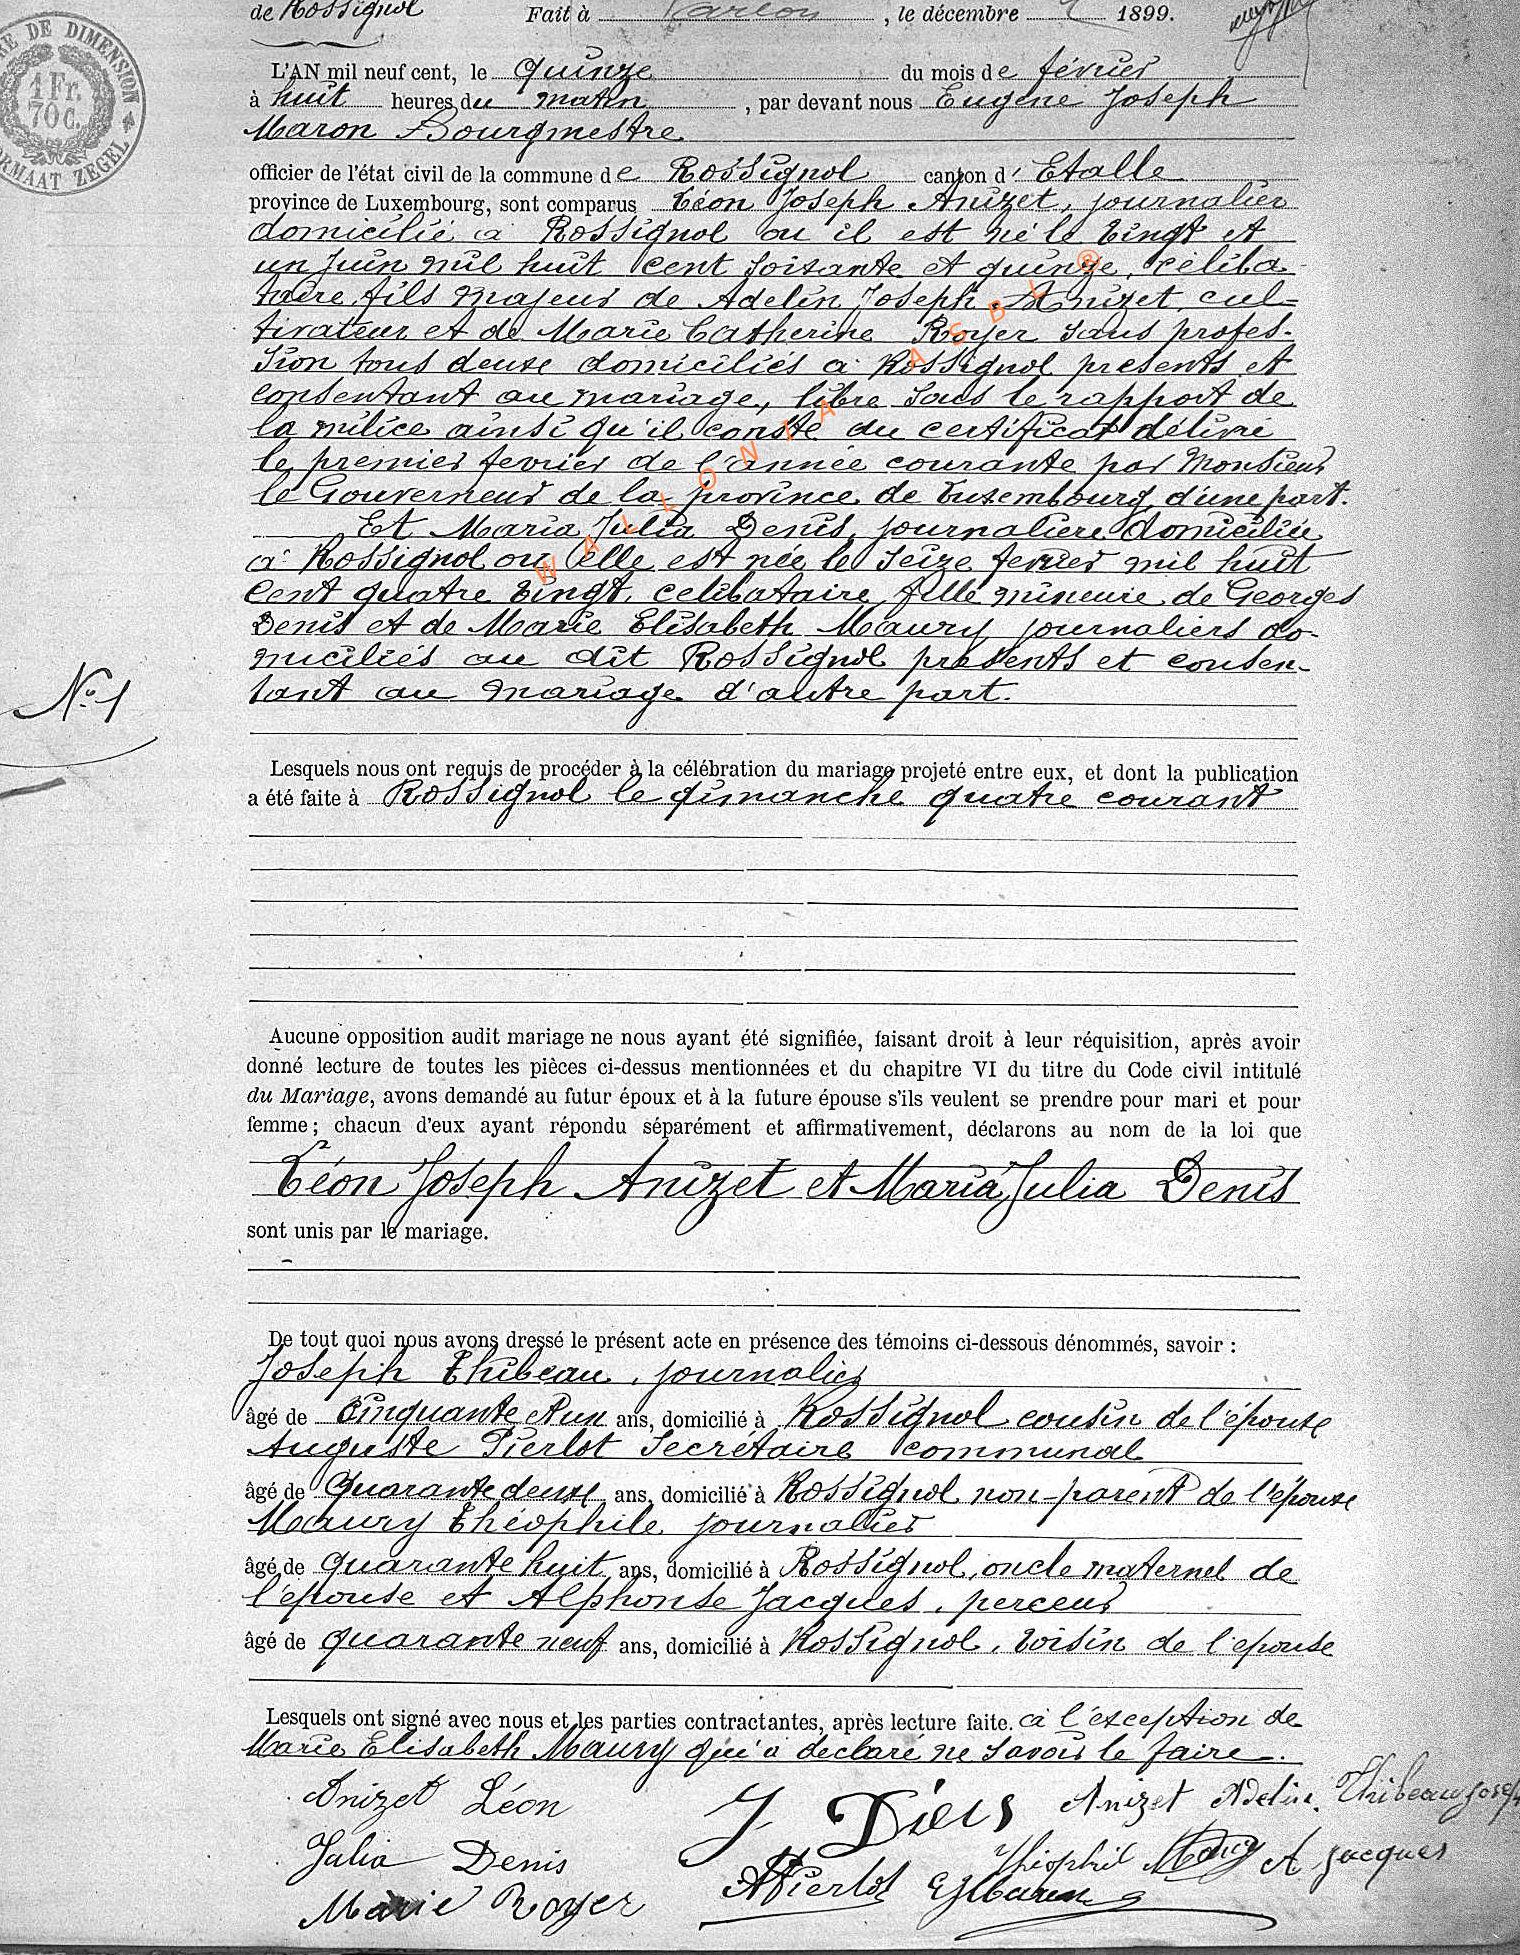 de Rossignol Fait à Marlon, le décembre 1899.
RE DE DIMENSION
1 Fr.
70 C.
FORMAAT ZEGEL
L'AN mil neuf cent, le quinze du mois de février
à huit heures du matin, par devant nous Eugène Joseph
Maron Bourgmestre
officier de l'état civil de la commune de Rossignol canton d' Etalle
province de Luxembourg, sont comparus Léon Joseph Anizet, journalier
domicilié à Rossignol ou il est né le vingt et
un Juin mil huit cent soixante et quinze, céliba
taire fils majeur de Adelin Joseph Anizet cul=
tivateur et de Marie Catherine Royer sans profes-
sion tous deux domiciliés à Rossignol présents et
consentant au mariage, libre sous le rapport de
la milice ainsi qu'il conste du certificat délivré
le premier fevrier de l'année courante par Monsieur
le Gouverneur de la province de Luxembourg d'une part.
Et Maria Julia Denis, journalière domiciliée
à Rossignol ou elle est née le seize fevrier mil huit
cent quatre vingt, celibataire, fille mineure de Georges
Denis et de Marie Elisabeth Maury journaliers do-
miciliés au dit Rossignol présents et consen-
tant au mariage d'autre part.
N° 1
WALLONIA ASBL ®
Lesquels nous ont requis de procéder à la célébration du mariage projeté entre eux, et dont la publication
a été faite à Rossignol le dimanche quatre courant
Aucune opposition audit mariage ne nous ayant été signifiée, faisant droit à leur réquisition, après avoir
donné lecture de toutes les pièces ci-dessus mentionnées et du chapitre VI du titre du Code civil intitulé
du Mariage, avons demandé au futur époux et à la future épouse s'ils veulent se prendre pour mari et pour
femme ; chacun d'eux ayant répondu séparément et affirmativement, déclarons au nom de la loi que
Léon Joseph Anizet et Maria Julia Denis
sont unis par le mariage.
De tout quoi nous avons dressé le présent acte en présence des témoins ci-dessous dénommés, savoir :
Joseph Thibeau, journalier
âgé de Cinquante et un ans, domicilié à Rossignol cousin de l'épouse
Auguste Pierlot Secrétaire communal
âgé de quarante deux ans, domicilié à Rossignol non-parent de l'épouse
Maury Théophile journalier
âgé de quarante huit ans, domicilié à Rossignol, oncle maternel de
l'épouse et Alphonse Jacques, perceur
âgé de quarante neuf ans, domicilié à Rossignol, voisin de l'epouse
Lesquels ont signé avec nous et les parties contractantes, après lecture faite. à l'exception de
Marie Elisabeth Maury qui a declaré ne savoir le faire.
Anizet Léon J. Dieis Anizet Adelin. Thibeau Joseph
Julia Denis Théophil Maury A Jacques
Marie Royer APierlot EJMaron